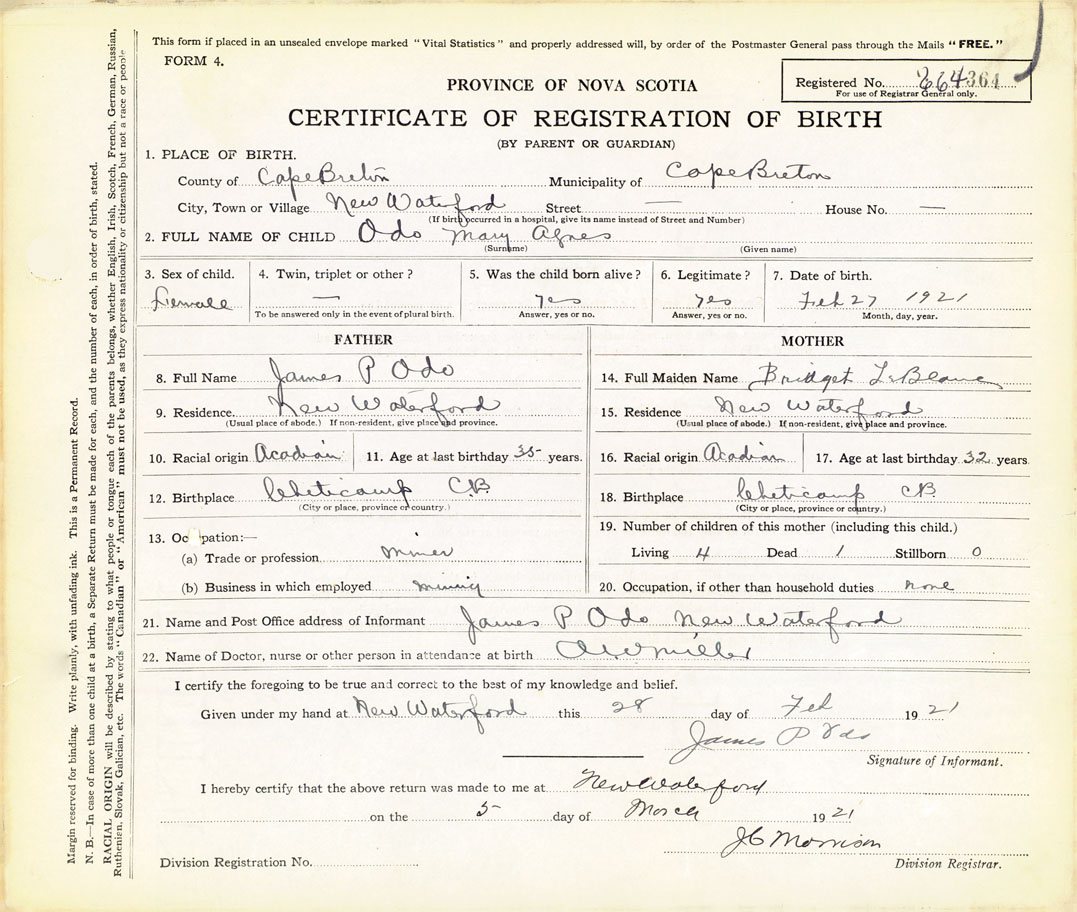 This form if placed in an unsealed envelope marked "Vital Statistics" and properly addressed will, by order of the Postmaster General pass through the Mails "FREE."
FORM 4.
Registered No. 364
For use of Registrar General only.
PROVINCE OF NOVA SCOTIA
CERTIFICATE OF REGISTRATION OF BIRTH
(BY PARENT OR GUARDIAN)
1. PLACE OF BIRTH.
County of Cape Breton Municipality of Cape Breton
City, Town or Village New Waterford Street — House No. —
(If birth occurred in a hospital, give its name instead of Street and Number)
2. FULL NAME OF CHILD Odo Mary Agnes
(Surname) (Given name)
3. Sex of child. 4. Twin, triplet or other? 5. Was the child born alive? 6. Legitimate? 7. Date of birth.
Female — yes yes Feb 27 1921
To be answered only in the event of plural birth. Answer, yes or no. Answer, yes or no. Month, day, year.
FATHER
8. Full Name James P Odo
9. Residence. New Waterford
(Usual place of abode.) If non-resident, give place and province.
10. Racial origin Acadian 11. Age at last birthday 35 years.
12. Birthplace Cheticamp C.B
(City or place, province or country.)
13. Oc pation:—
(a) Trade or profession miner
(b) Business in which employed mining
MOTHER
14. Full Maiden Name Bridget LeBlanc
15. Residence New Waterford
(Usual place of abode.) If non-resident, give place and province.
16. Racial origin Acadian 17. Age at last birthday 32 years.
18. Birthplace Cheticamp CB.
(City or place, province or country.)
19. Number of children of this mother (including this child.)
Living 4 Dead 1 Stillborn 0
20. Occupation, if other than household duties none
21. Name and Post Office address of Informant James P Odo New Waterford
22. Name of Doctor, nurse or other person in attendance at birth Miller
I certify the foregoing to be true and correct to the best of my knowledge and belief.
Given under my hand at New Waterford this 28 day of Feb 1921
James P Odo
Signature of Informant.
I hereby certify that the above return was made to me at New Waterford
on the 5 day of March 1921
J C Morrison
Division Registrar.
Division Registration No.
Margin reserved for binding. Write plainly, with unfading ink. This is a Permanent Record.
N. B.—In case of more than one child at a birth, a Separate Return must be made for each, and the number of each, in order of birth, stated.
RACIAL ORIGIN will be described by stating to what people or tongue each of the parents belongs, whether English, Irish, Scotch, French, German, Russian,
Ruthenian, Slovak, Galician, etc. The words "Canadian" or "American" must not be used, as they express nationality or citizenship but not a race or people